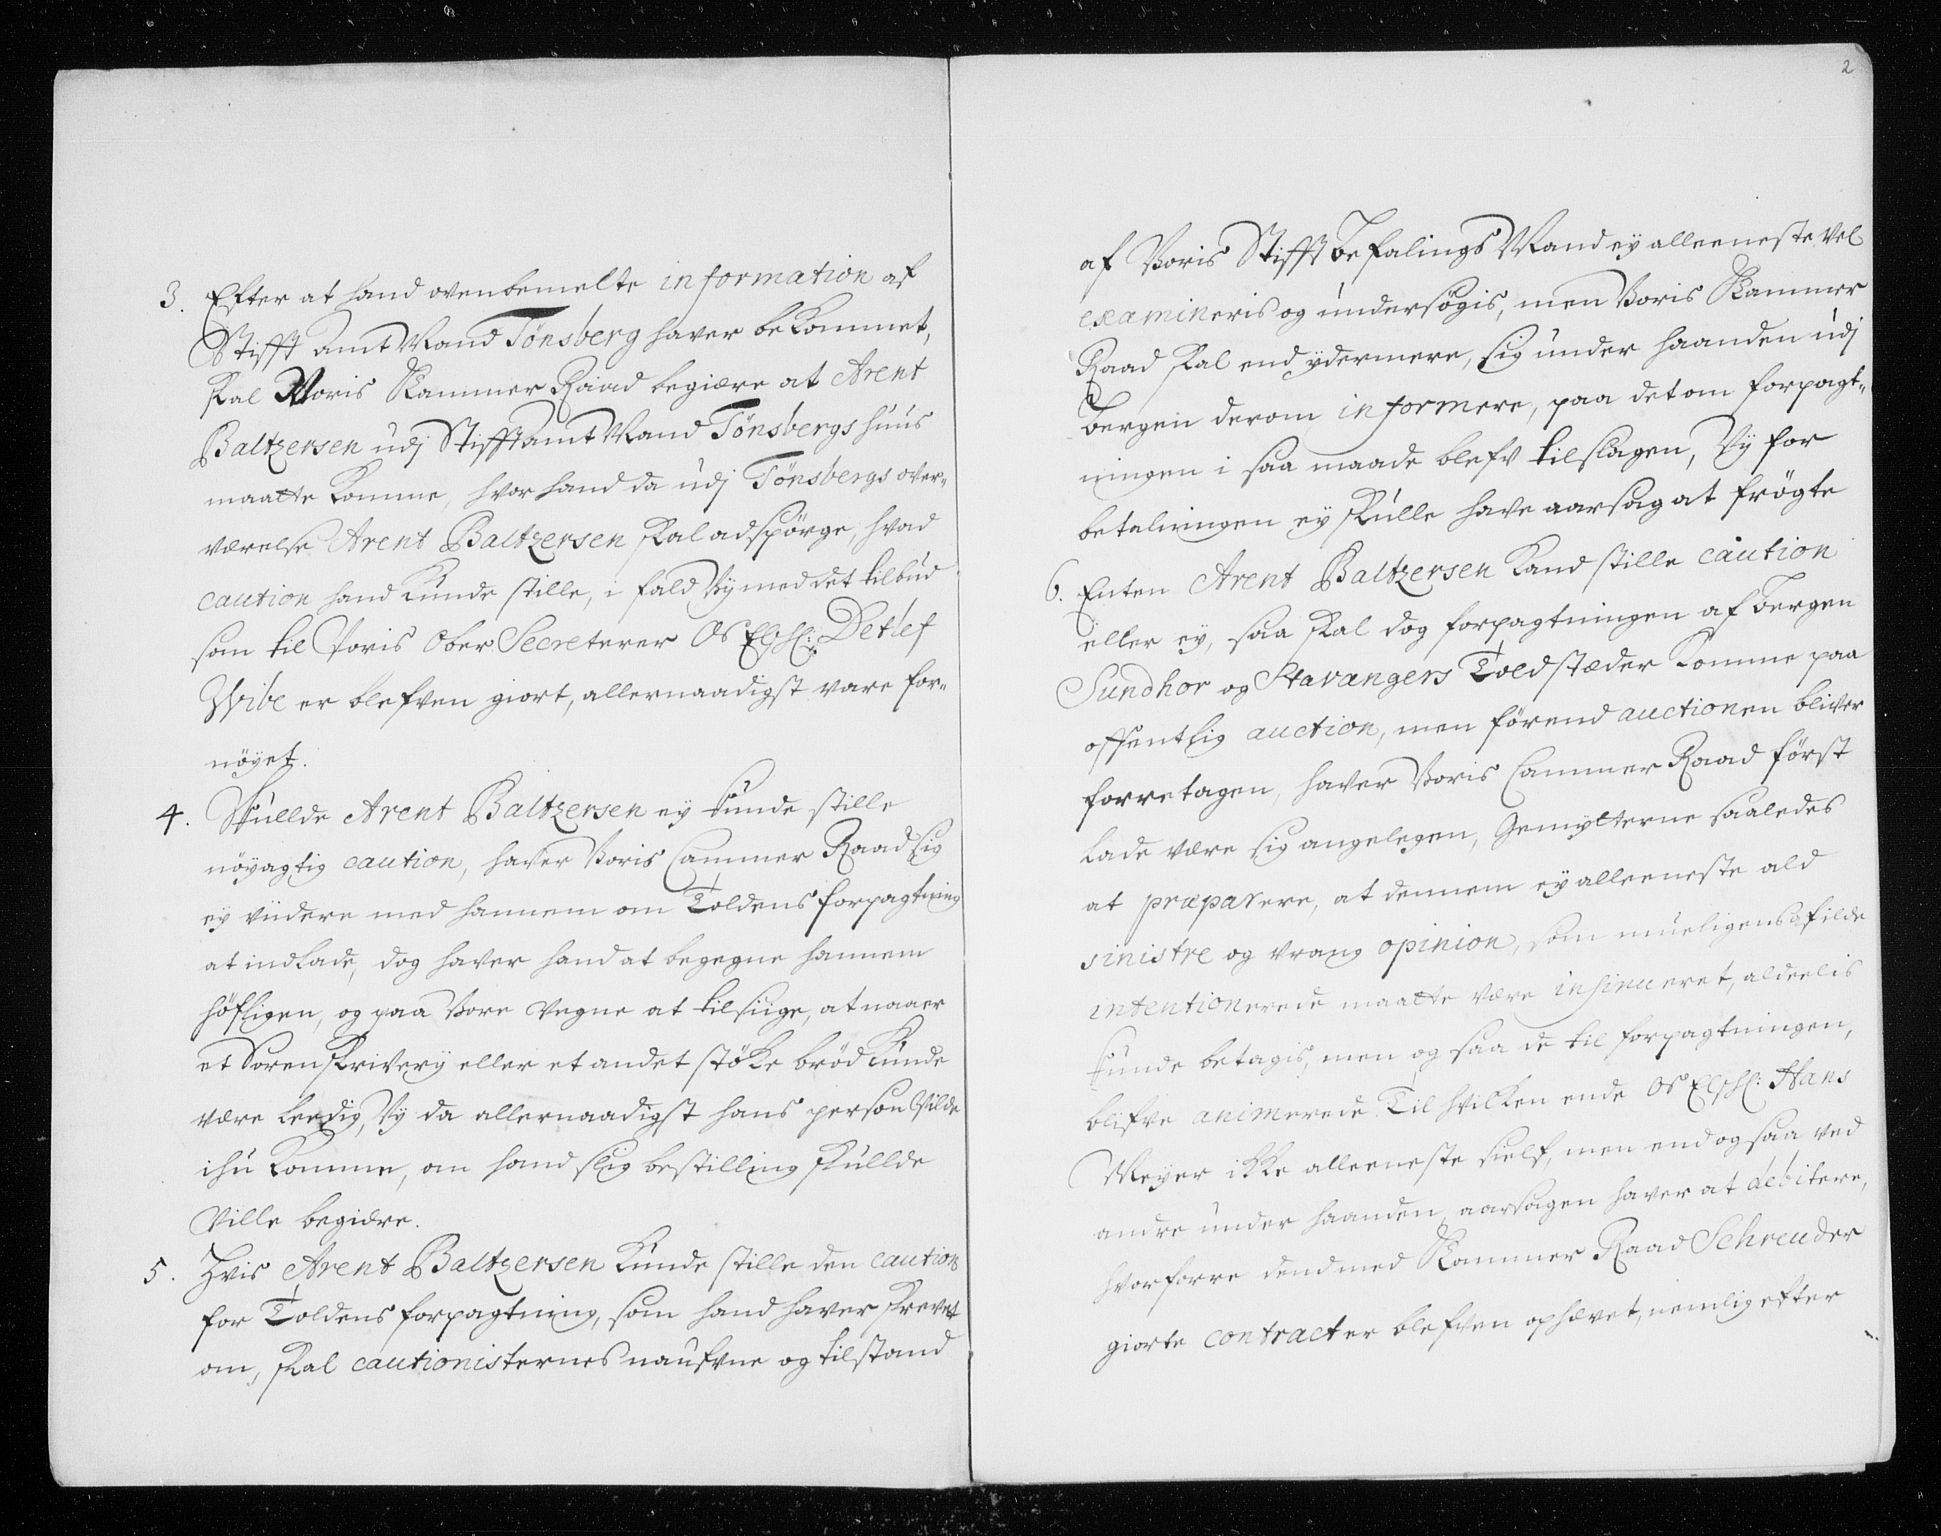 3. Efter at hand ovenbemelte information af
Stifft Amt Mand Tönsberg haver bekommet,
skal Voris Kammer Raad begiære at Arent
Baltzersen udj Stifftamt Mand Tönsbergs huus
maatte komme, hvor hand da udj Tönsbergs over-
værelse Arent Baltzersen skal adspörge, hvad
caution hand kunde stille, i fald Vy med det tilbud
som til Voris Ober Secreterer Os Elskl: Detlef
Wibe er blefven giort, allernaadigst vare for-
nöyet.
4. Skullde Arent Baltzersen ey kunde stille
nöyagtig caution, haver Voris Cammer Raad sig
ey viidere med hannem om Toldens forpagtning
at indlade, dog haver hand at begegne hannem
höfligen, og paa Vore Vegne at tilsiige, at naaer
et Sorenskrivery eller et andet stökke bröd kunde
være leedig, Vy da allernaadigst hans person Vilde
ihu komme, om hand slig bestilling skullde
Ville begiære.
5. Hvis Arent Baltzersen kunde stille den caution
for Toldens forpagtning, som hand haver skrevet
om, skal cautionisternes naufne og tilstand
2
af Voris Stifft befalings Mand ey alleeneste vel
examineris og undersögis, men Voris Kammer
Raad skal end ydermere, sig under haanden udj
Bergen derom informere, paa det om forpagt-
ningen i saa maade blefv tilslagen, Vy for
betalningen ey skulle have aarsag at frögte
6. Enten Arent Baltzersen kand stille caution
eller ey, saa skal dog forpagtningen af Bergen
Sundhor og Stavangers Toldstæder komme paa
offentlig auction, men förend auctionen bliver
forretagen, haver Voris Cammer Raad först
lade være sig angelegen, Gemytterne saaledes
at præparere, at dennem ey alleeneste ald
sinistre og vrang opinion, som mueligens af ilde
intentionerede maatte være insinueret, aldeelis
kunde betagis, men og saa de til forpagtningen,
blifve animerede. Til hvilken ende Os Elskl: Hans
Meyer ikke alleeneste sielf, men end og saa ved
andre under haanden, aarsagen haver at debitere,
hvorforre dend med Kammer Raad Schreuder
giorte contract er blefven ophævet, nemlig efter